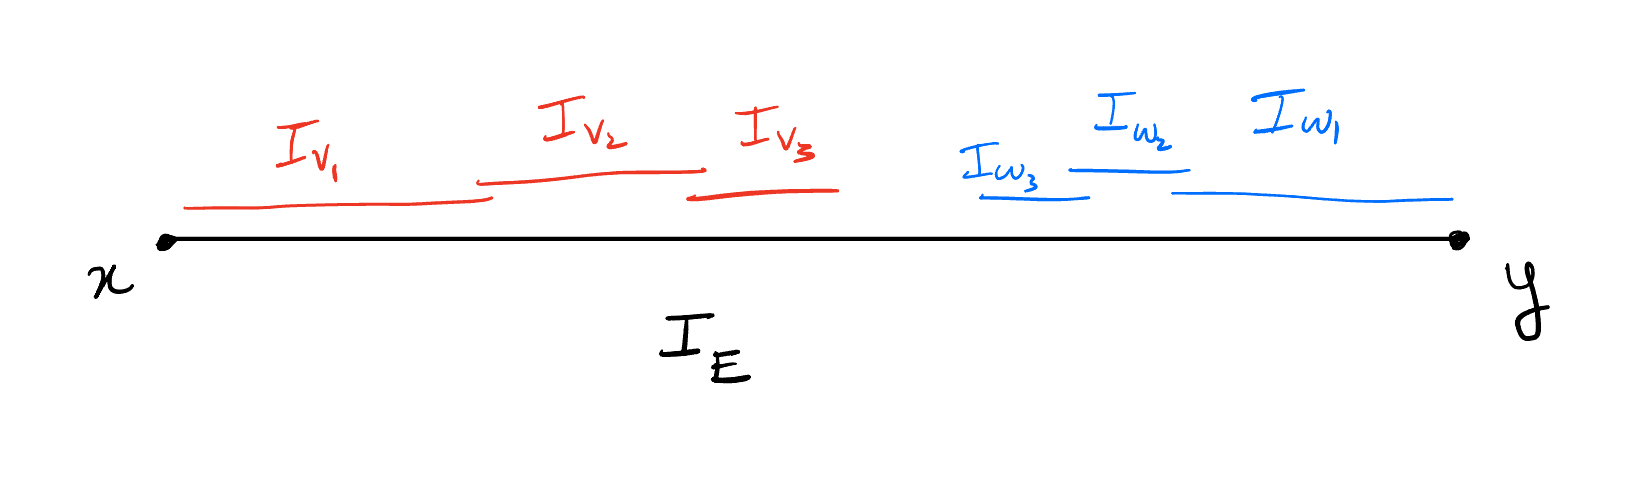 I_{v_1} I_{v_2} I_{v_3} I_{w_3} I_{w_2} I_{w_1}
x y
I_E